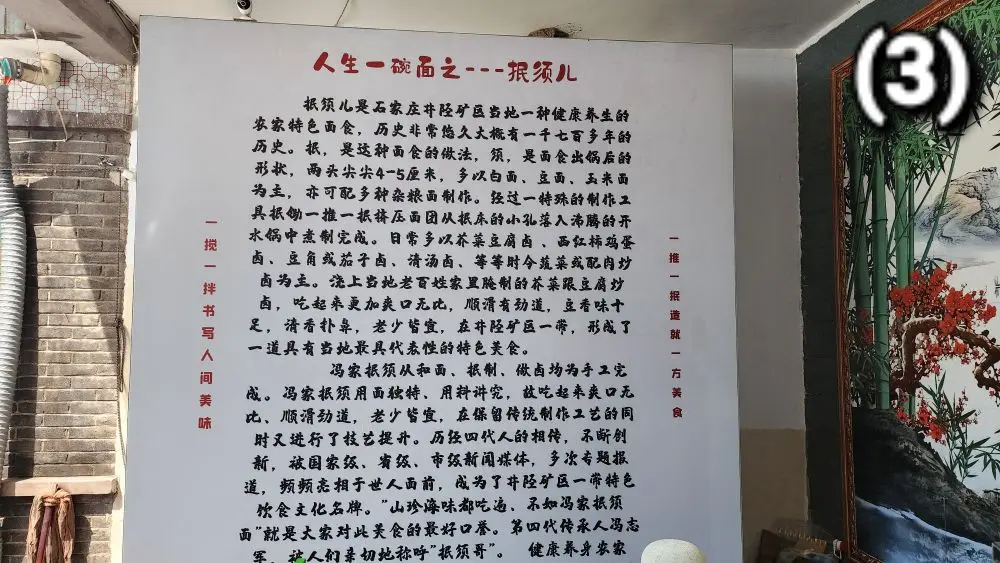 (3)
人生一碗面之---抿须儿
抿须儿是石家庄井陉矿区当地一种健康养生的
农家特色面食，历史非常悠久大概有一千七百多年的
历史。抿，是这种面食的做法，须，是面食出锅后的
形状，两头尖尖4-5厘米，多以白面、豆面、玉米面
为主，亦可配多种杂粮面制作。经过一特殊的制作工
具抿锄一推一抿挤压面团从抿床的小孔落入沸腾的开
水锅中煮制完成。日常多以芥菜豆腐卤、西红柿鸡蛋
卤、豆角或茄子卤、清汤卤、等等时令蔬菜或配肉炒
卤为主。浇上当地老百姓家里腌制的芥菜跟豆腐炒
卤，吃起来更加爽口无比，顺滑有劲道，豆香味十
足，清香扑鼻，老少皆宜，在井陉矿区一带，形成了
一道具有当地最具代表性的特色美食。
冯家抿须从和面、抿制、做卤均为手工完
成。冯家抿须用面独特、用料讲究，故吃起来爽口无
比、顺滑劲道，老少皆宜，在保留传统制作工艺的同
时又进行了技艺提升。历经四代人的相传，不断创
新，被国家级、省级、市级新闻媒体，多次专题报
道，频频亮相于世人面前，成为了井陉矿区一带特色
饮食文化名牌。"山珍海味都吃遍、不如冯家抿须
面"就是大家对此美食的最好口誉。第四代传承人冯志
军，被人们亲切地称呼"抿须哥"。 健康养身农家
一搅一拌书写人间美味
一推一抿造就一方美食